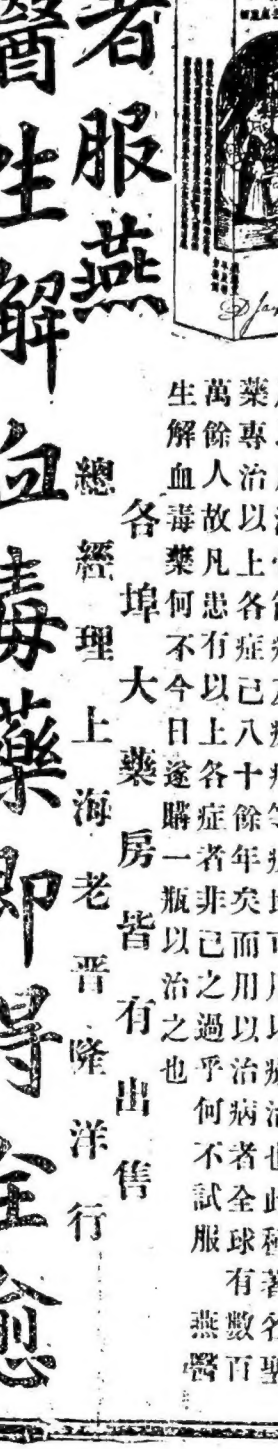 也此種著名聖
藥專治以上各症已八十餘年矣而用以治病者全球有數百
萬餘人故凡患有以上各症者非已之過乎何不試服燕醫
生解血毒藥何不今日遂購一瓶以治之也
各埠大藥房皆有出售
總經理上海老晉隆洋行
者服燕
醫生解血毒藥即得全愈